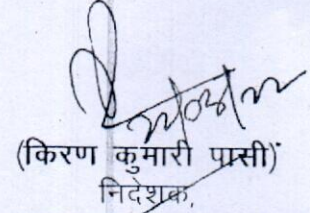 (किरण कुमारी पासी)
निदेशक,